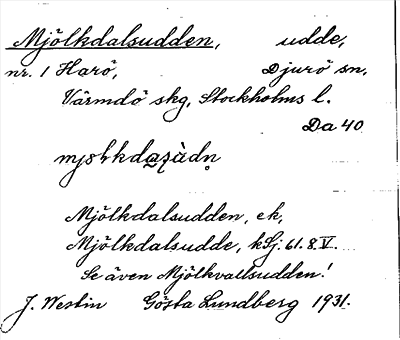 Mjölkdalsudden, udde,
nr. 1 Harö, Djurö sn,
Värmdö skg, Stockholms l.
Da 40
Mjölkdalsudden, ek,
Mjölkdalsudde, kSj. 61. 8. V.
Se även Mjölkvallsudden!
J. Westin Gösta Lundberg 1931.